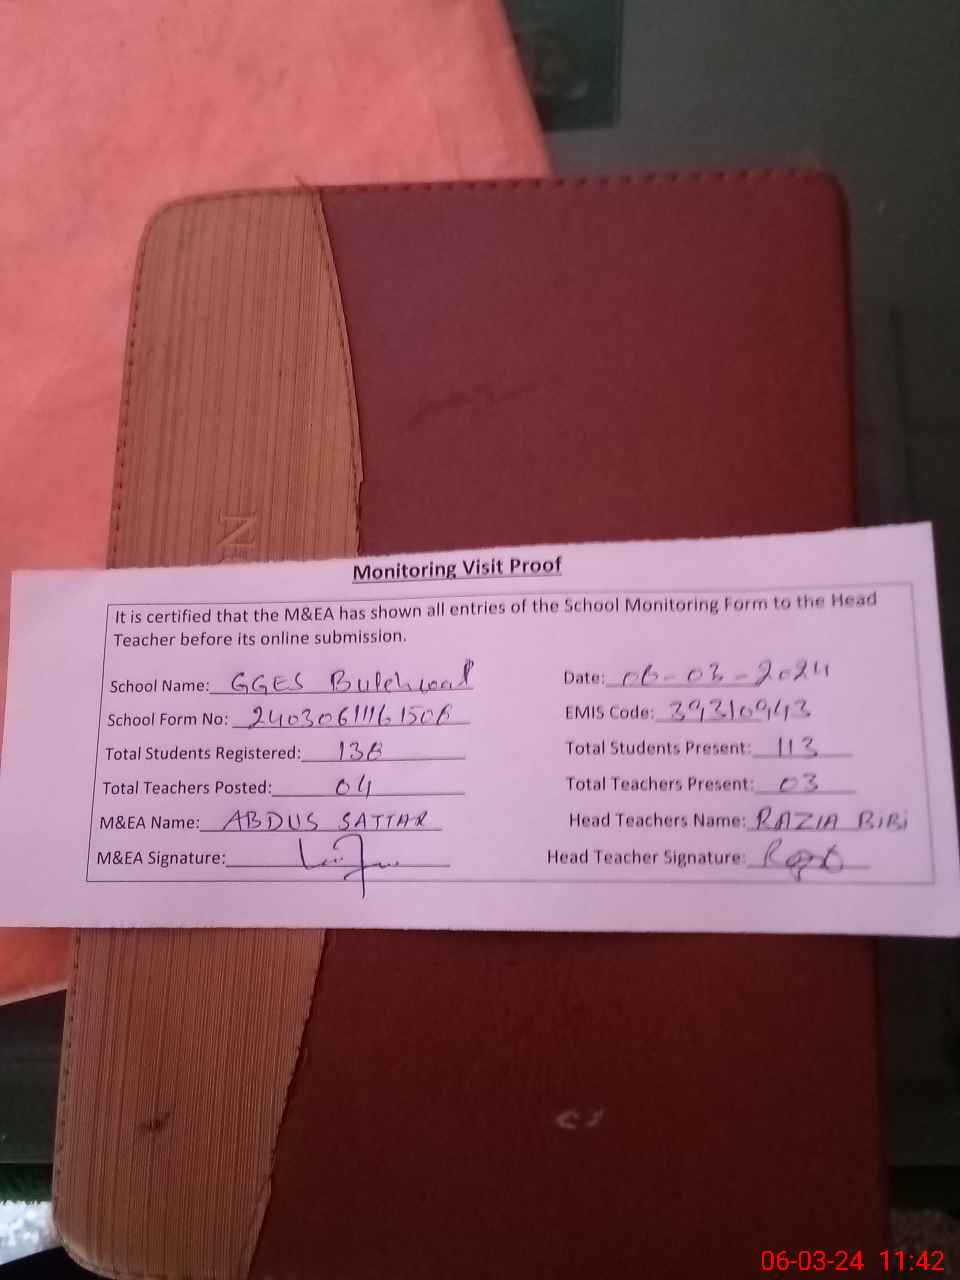 NE
Monitoring Visit Proof
It is certified that the M&EA has shown all entries of the School Monitoring Form to the Head
Teacher before its online submission.
School Name: GGES Bulehwal Date: 06-03-2024
School Form No: 2403061116150B EMIS Code: 39310943
Total Students Registered: 138 Total Students Present: 113
Total Teachers Posted: 04 Total Teachers Present: 03
M&EA Name: ABDUS SATTAR Head Teachers Name: RAZIA BIBI
M&EA Signature: Head Teacher Signature:
06-03-24 11:42